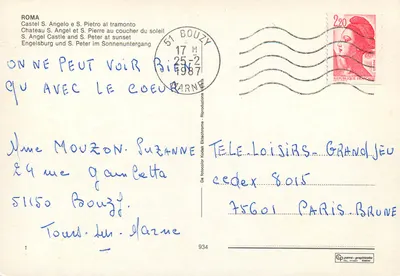 ROMA
Castel S. Angelo e S. Pietro al tramonto
Chateau S. Angel et S. Pierre au coucher du soleil
S. Angel Castle and S. Peter at sunset
Engelsburg und S. Peter im Sonnenuntergang
51 BOUZY
17 H
25-2
1987
MARNE
2,20
ON NE PEUT VOIR BIEN
QU AVEC LE COEUR
Mme MOUZON. SUZANNE
24 rue gambetta
51150 Bouzy.
Tours-sur-Marne
TELE-LOISIRS-GRAND JEU
cedex 8015
75601 PARIS-BRUNE
1
934